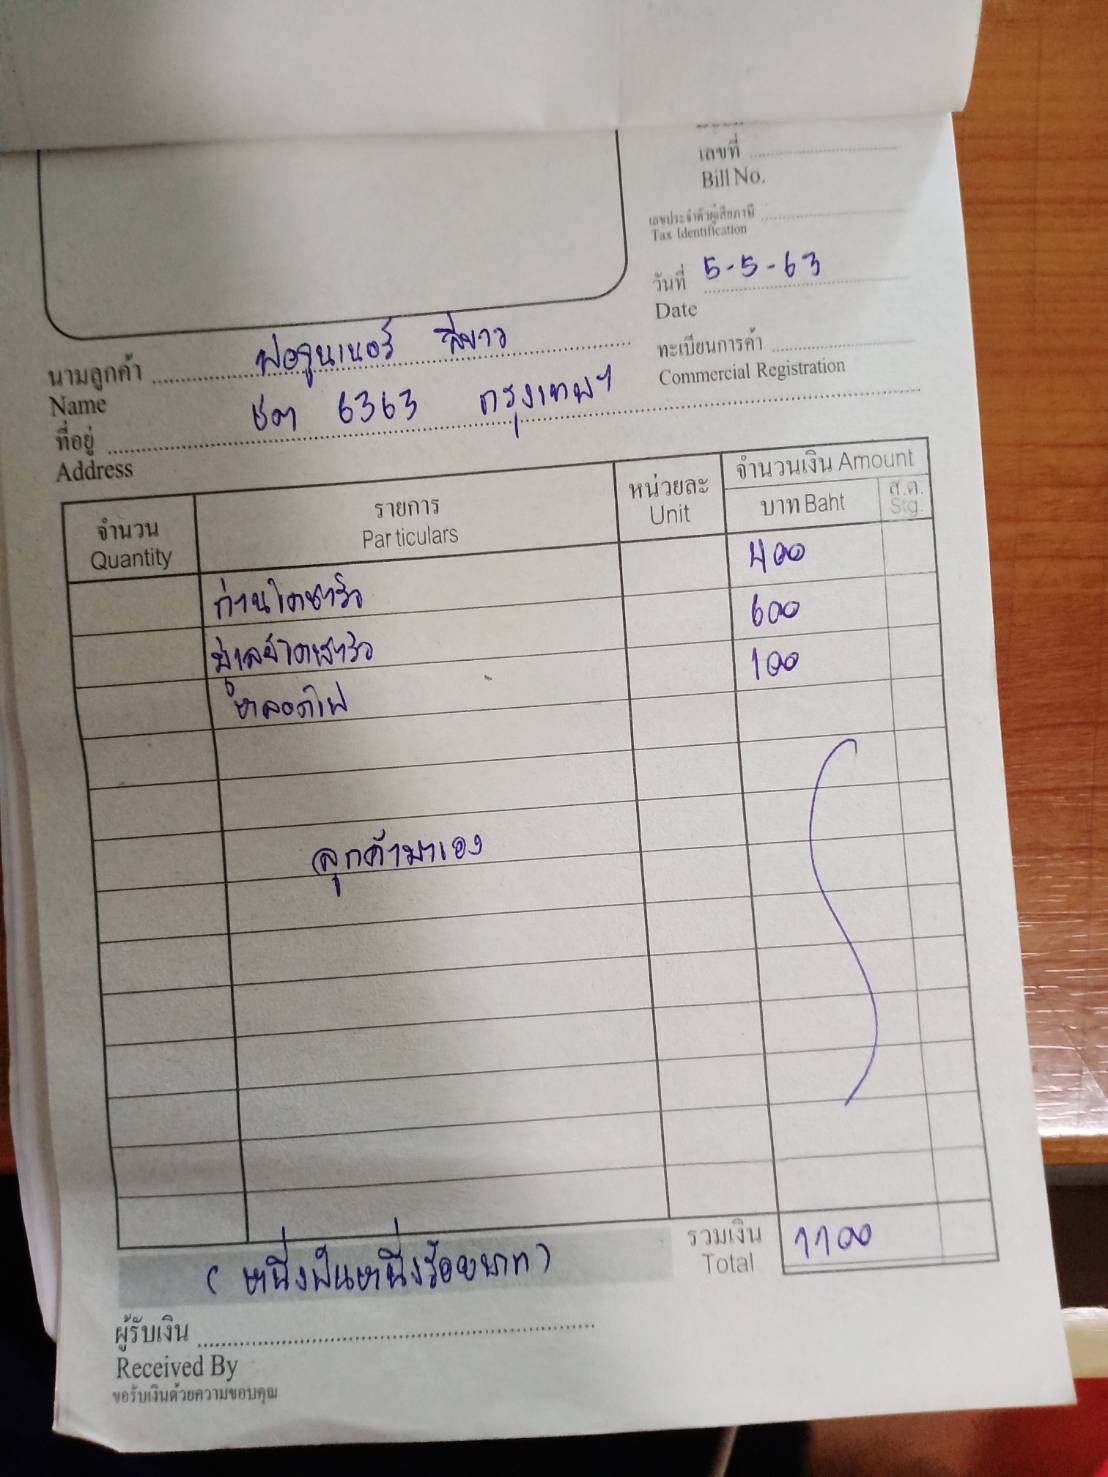 เลขที่
Bill No.
เลขประจำตัวผู้เสียภาษี
Tax Identification
วันที่ 5-5-63
Date
ทะเบียนการค้า
Commercial Registration
นามลูกค้า ฟอจูนเนอร์ สีขาว
Name
ที่อยู่ ชต 6363 กรุงเทพฯ
Address
จำนวน Quantity รายการ Particulars หน่วยละ Unit จำนวนเงิน Amount
บาท Baht ส.ต. Stg.
ถ่านไดชาร์จ 400
มู่เลย์ไดชาร์จ 600
หลอดไฟ 100
ลูกค้ามาเอง
รวมเงิน Total 1100
( หนึ่งพันหนึ่งร้อยบาท )
ผู้รับเงิน
Received By
ขอรับเงินด้วยความขอบคุณ